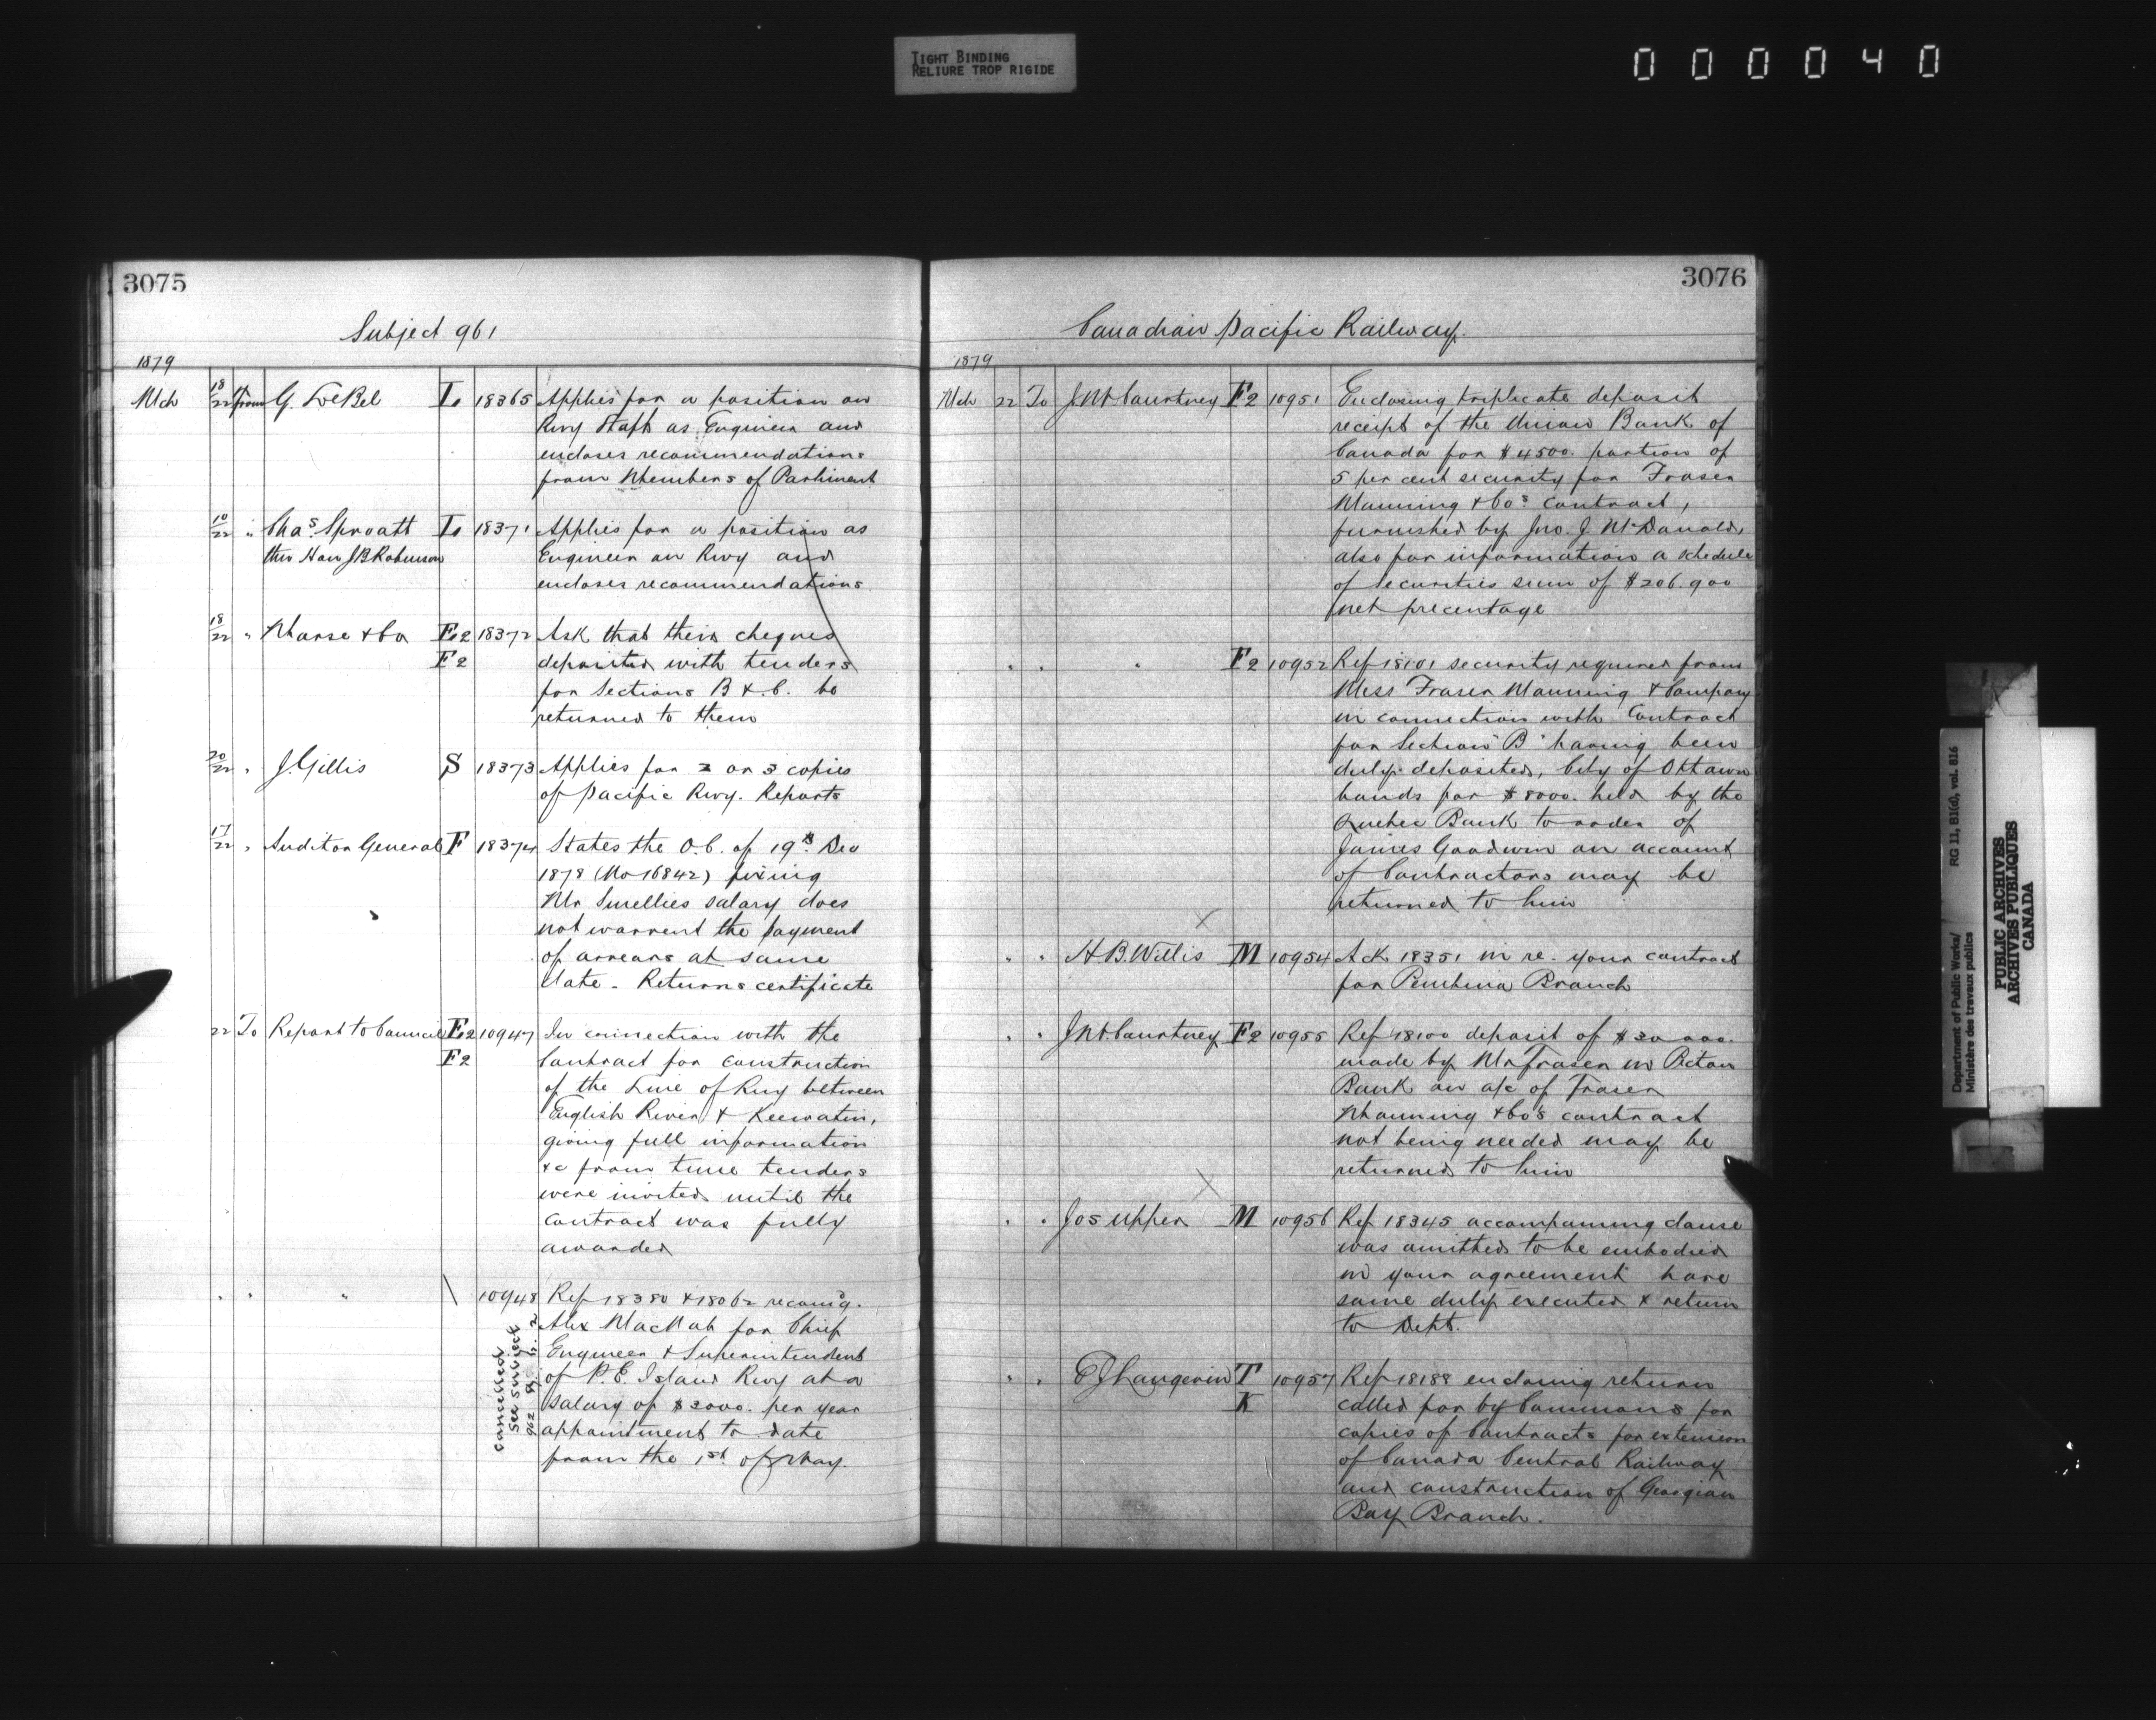 TIGHT BINDING
RELIURE TROP RIGIDE
000040
3075
Subject 961
1879
Mch 18/22 From G. LeBel I. 18365 Applies for a position on
Rwy Staff as Engineer and
encloses recommendations
from Members of Parliment
10/22 " Chas. Sproatt I. 18371 Applies for a position as
thro Hon J B Robinson Engineer on Rwy and
encloses recommendations
18/22 " Manse & Co E.2 18372 Ask that their cheques
F 2 deposited with tenders
for Sections B & C. be
returned to them
20/22 " J. Gillis S 18373 Applies for 2 or 3 copies
of Pacific Rwy. Reports
17/22 " Auditor General F 18374 States the O.C. of 19th Dec
1878 (No 16842) fixing
Mr Smellies salary does
not warrent the payment
of arrears at same
date - Returns certificate
22 To Report to Council E.2 10947 In connection with the
F 2 Contract for construction
of the Line of Rwy between
English River & Keewatin,
giving full information
&c from time tenders
were invited until the
contract was fully
awarded
" " " \ 10948 Ref 18380 & 18062 recomg.
Alex MacNab for Chief
Engineer & Superintendent
of P. E. Island Rwy at a
salary of $2000. per year
appointment to date
from the 1st of May.
Cancelled
See subject
962
3076
Canadian Pacific Railway.
1879
Mch 22 To J.M. Courtney F 2 10951 Enclosing triplicate deposit
receipt of the Union Bank of
Canada for $4500. portion of
5 per cent security for Fraser
Manning & Co's contract,
furnished by Jno. J. McDonald,
also for information a schedule
of securities sum of $206.900
net precentage
" " " F 2 10952 Ref 18101 security required from
Mess Fraser Manning & Company
in connection with Contract
for Section "B" having been
duly deposited, City of Ottawa
bonds for $8000. held by the
Quebec Bank to order of
James Goodwin on account
of Contractors may be
returned to him
X
" " H.B. Willis M 10954 Ack 18351 in re. your contract
for Pembina Branch
" " J.M. Courtney F 2 10955 Ref 18100 deposit of $20000.
made by Mr Fraser in Pictou
Bank on a/c of Fraser
Manning & Co's contract
not being needed may be
returned to him
X
" " Jos Upper M 10956 Ref 18345 accompaning clause
was omitted to be embodied
in your agreement have
same duly executed & return
to Dept.
" " E J Langevin T 10957 Ref 18188 enclosing return
K called for by Commons for
copies of Contracts for extension
of Canada Central Railway
and construction of Georgian
Bay Branch.
Department of Public Works/ RG 11, B1(d), vol. 816
Ministère des travaux publics
PUBLIC ARCHIVES
ARCHIVES PUBLIQUES
CANADA